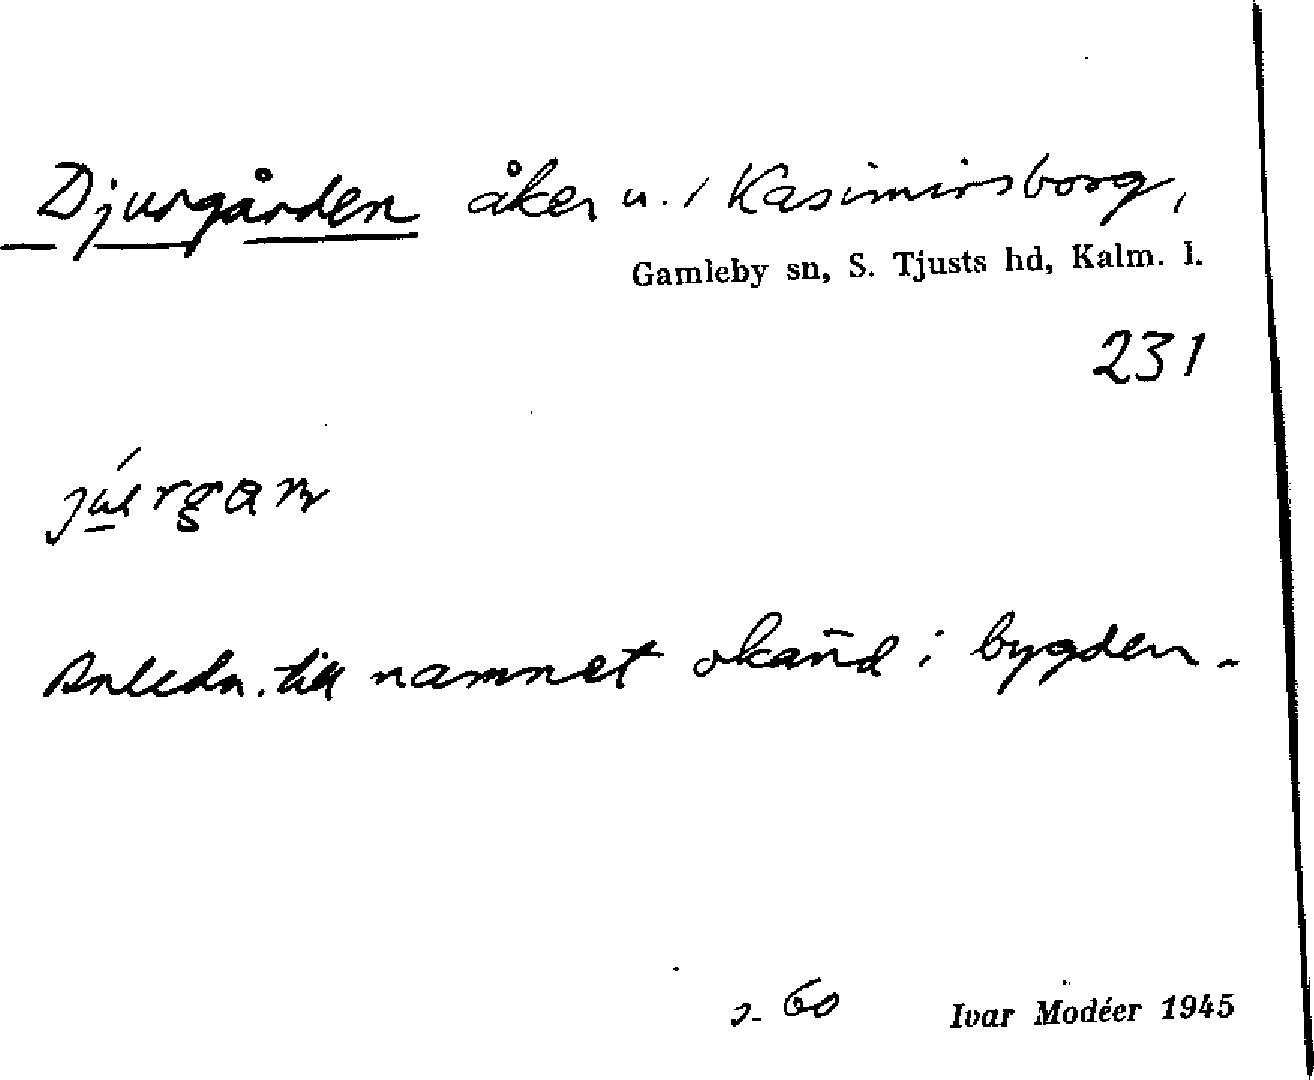 Djurgården åker u. / Kasimirsborg,
Gamleby sn, S. Tjusts hd, Kalm. l.
231
júrgan
Anledn. till namnet okänd i bygden.
s. 60 Ivar Modéer 1945